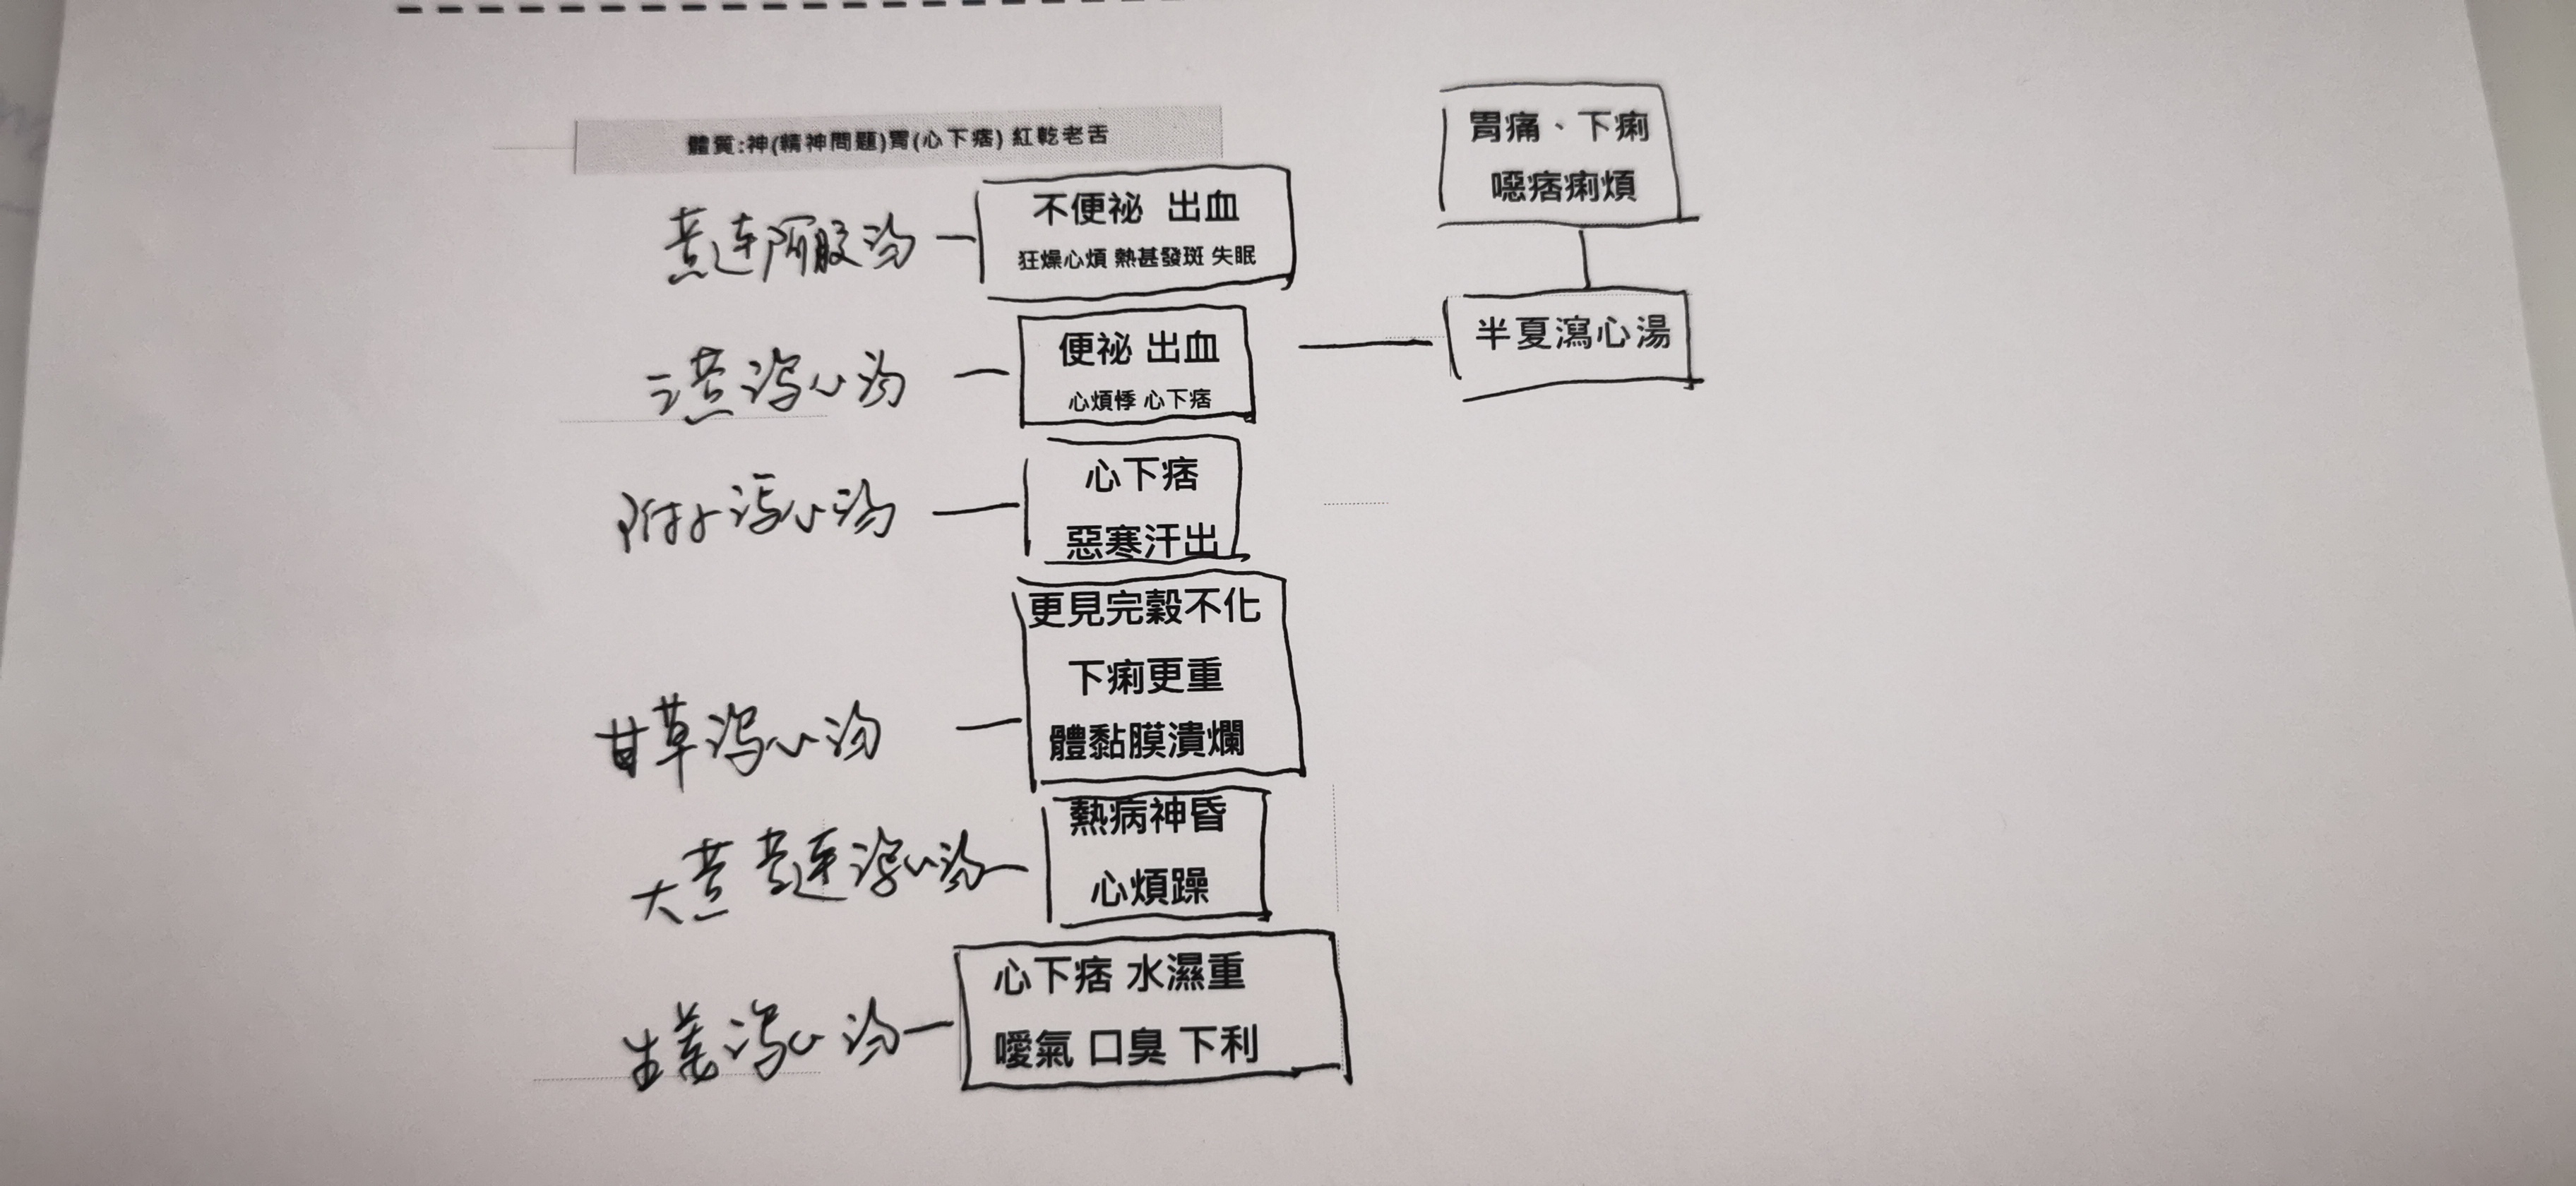 體質:神(精神問題)胃(心下痞) 紅乾老舌
黄连阿胶汤
不便祕 出血
狂燥心煩 熱甚發斑 失眠
三黄泻心汤
便祕 出血
心煩悸 心下痞
附子泻心汤
心下痞
惡寒汗出
甘草泻心汤
更見完穀不化
下痢更重
體黏膜潰爛
大黄黄连泻心汤
熱病神昏
心煩躁
生姜泻心汤
心下痞 水濕重
噯氣 口臭 下利
胃痛、下痢
噁痞痢煩
半夏瀉心湯